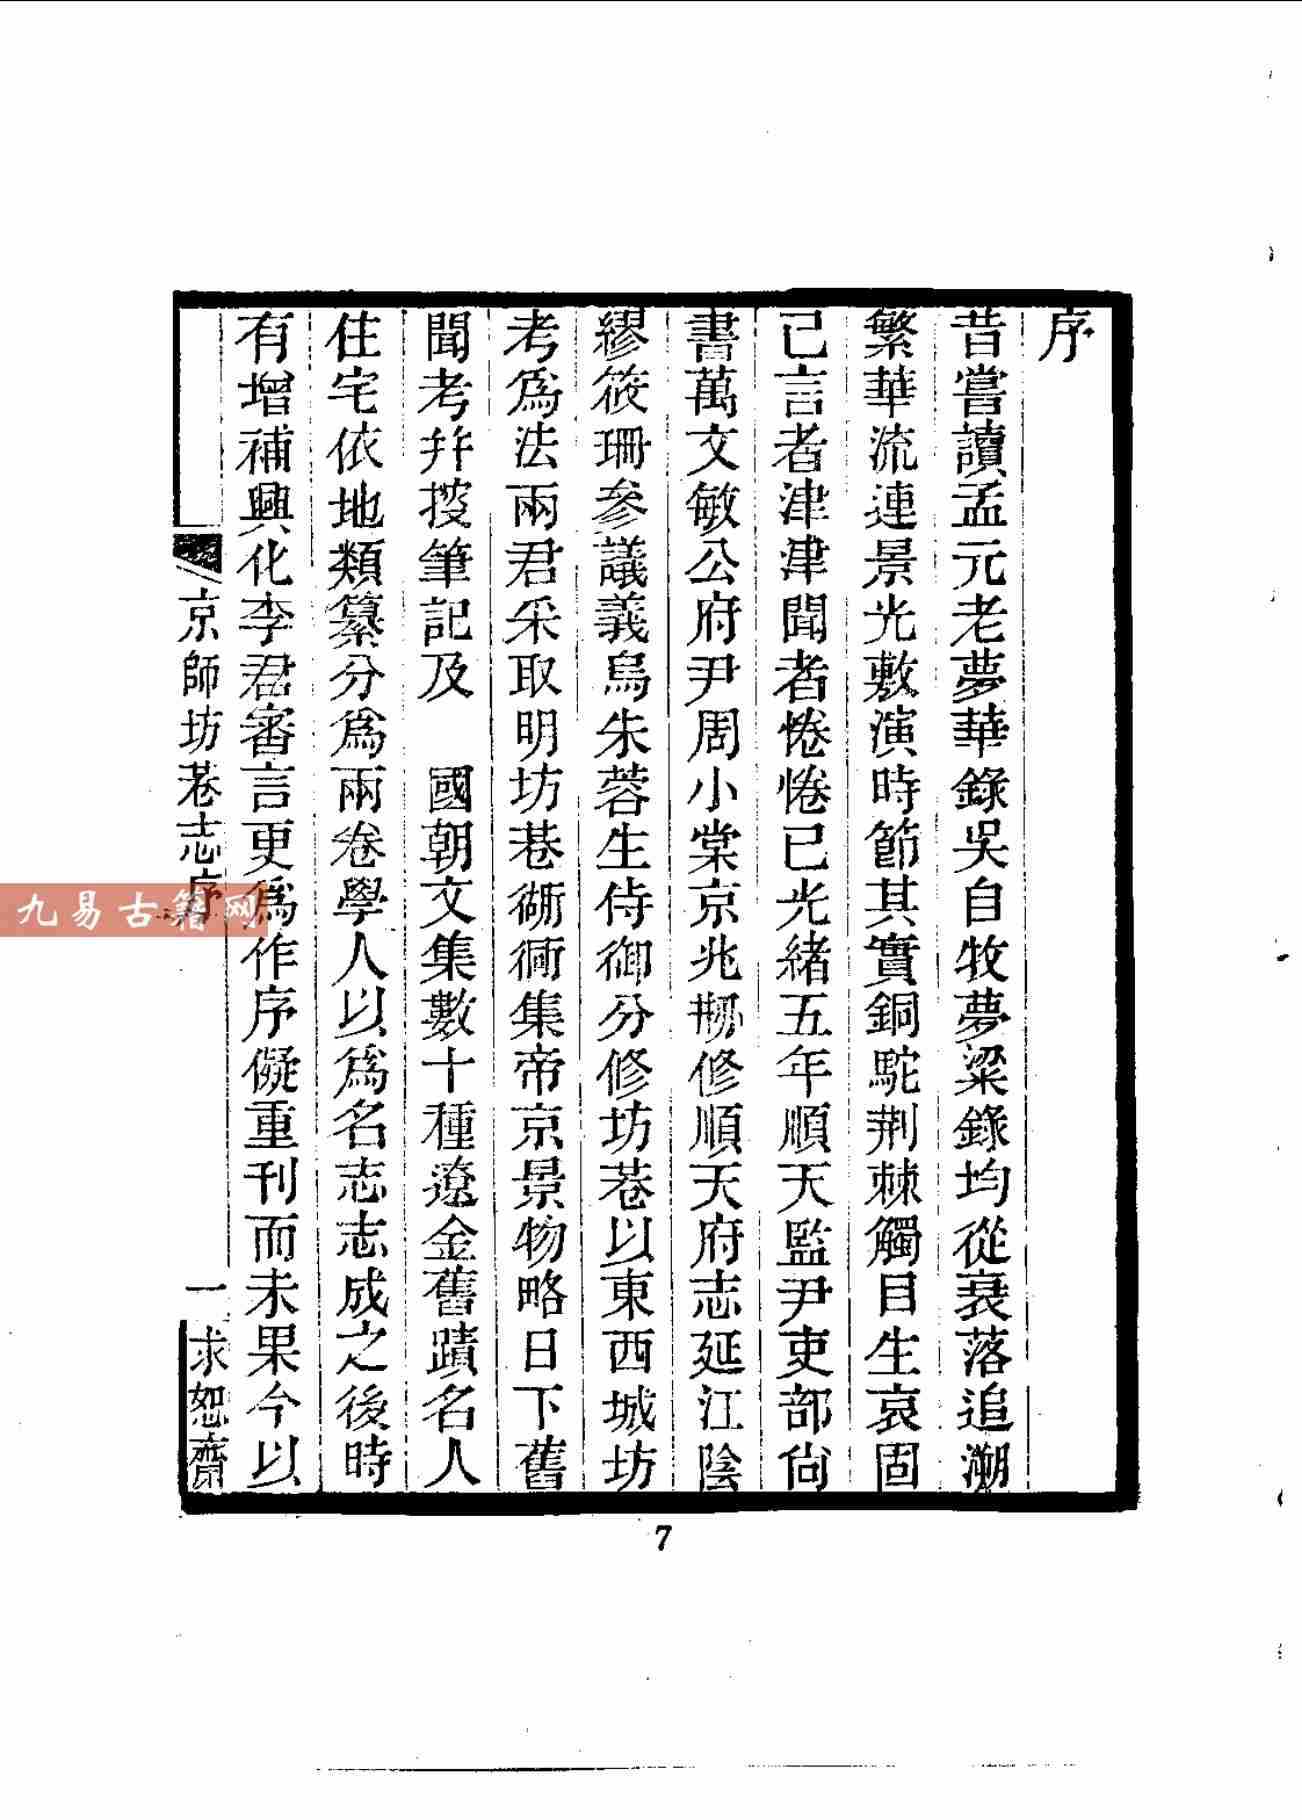 序
昔嘗讀孟元老夢華錄吳自牧夢粱錄均從衰落追溯
繁華流連景光敷演時節其實銅駝荆棘觸目生哀固
已言者津津聞者惓惓已光緒五年順天監尹吏部尙
書萬文敏公府尹周小棠京兆剏修順天府志延江陰
繆筱珊參議義烏朱蓉生侍御分修坊巷以東西城坊
考爲法兩君采取明坊巷衚衕集帝京景物略日下舊
聞考幷搜筆記及　國朝文集數十種遼金舊蹟名人
住宅依地類纂分爲兩卷學人以爲名志志成之後時
有增補興化李君審言更爲作序儗重刊而未果今以
京師坊巷志序
一
求恕齋
7
九易古籍网